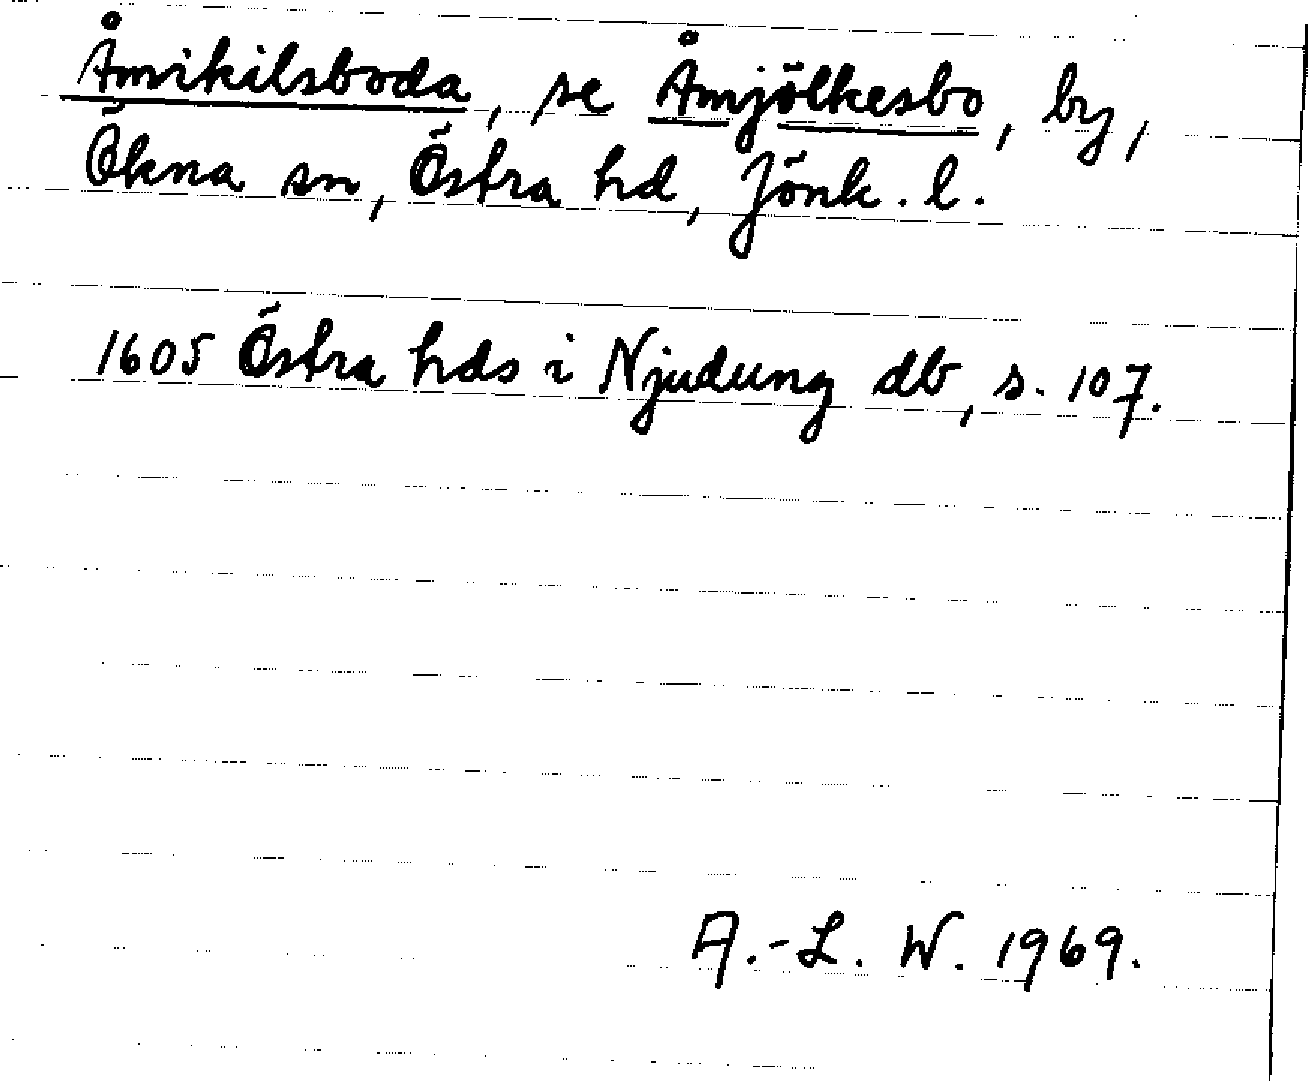 Åmikilsboda, se Åmjölkesbo, by,
Ökna sn, Östra hd, Jönk. l.
1605 Östra hds i Njudung db, s. 107.
A.-L. W. 1969.